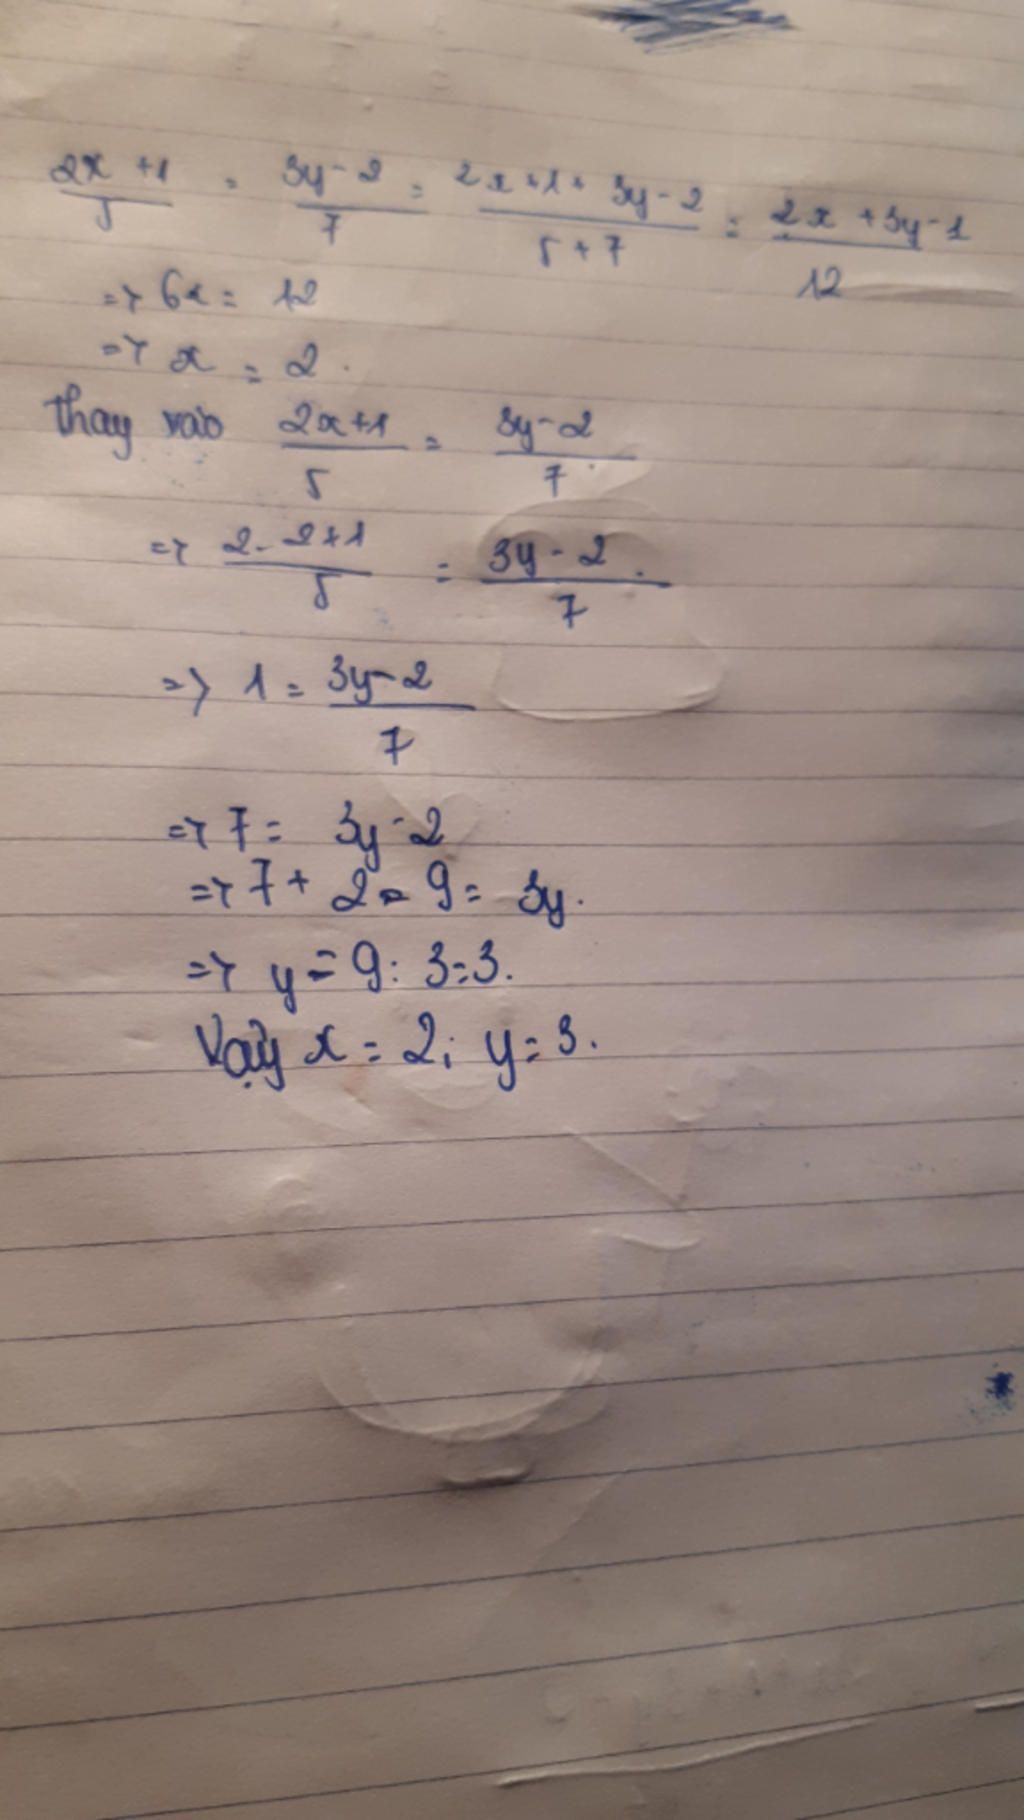 2x+1/5 = 3y-2/7 = 2x+1+3y-2/5+7 = 2x+3y-1/12
=> 6x = 12
=> x = 2.
Thay vào 2x+1/5 = 3y-2/7
=> 2.2+1/5 = 3y-2/7.
=> 1 = 3y-2/7
=> 7 = 3y-2
=> 7+2=9=3y.
=> y=9:3=3.
Vậy x=2; y=3.